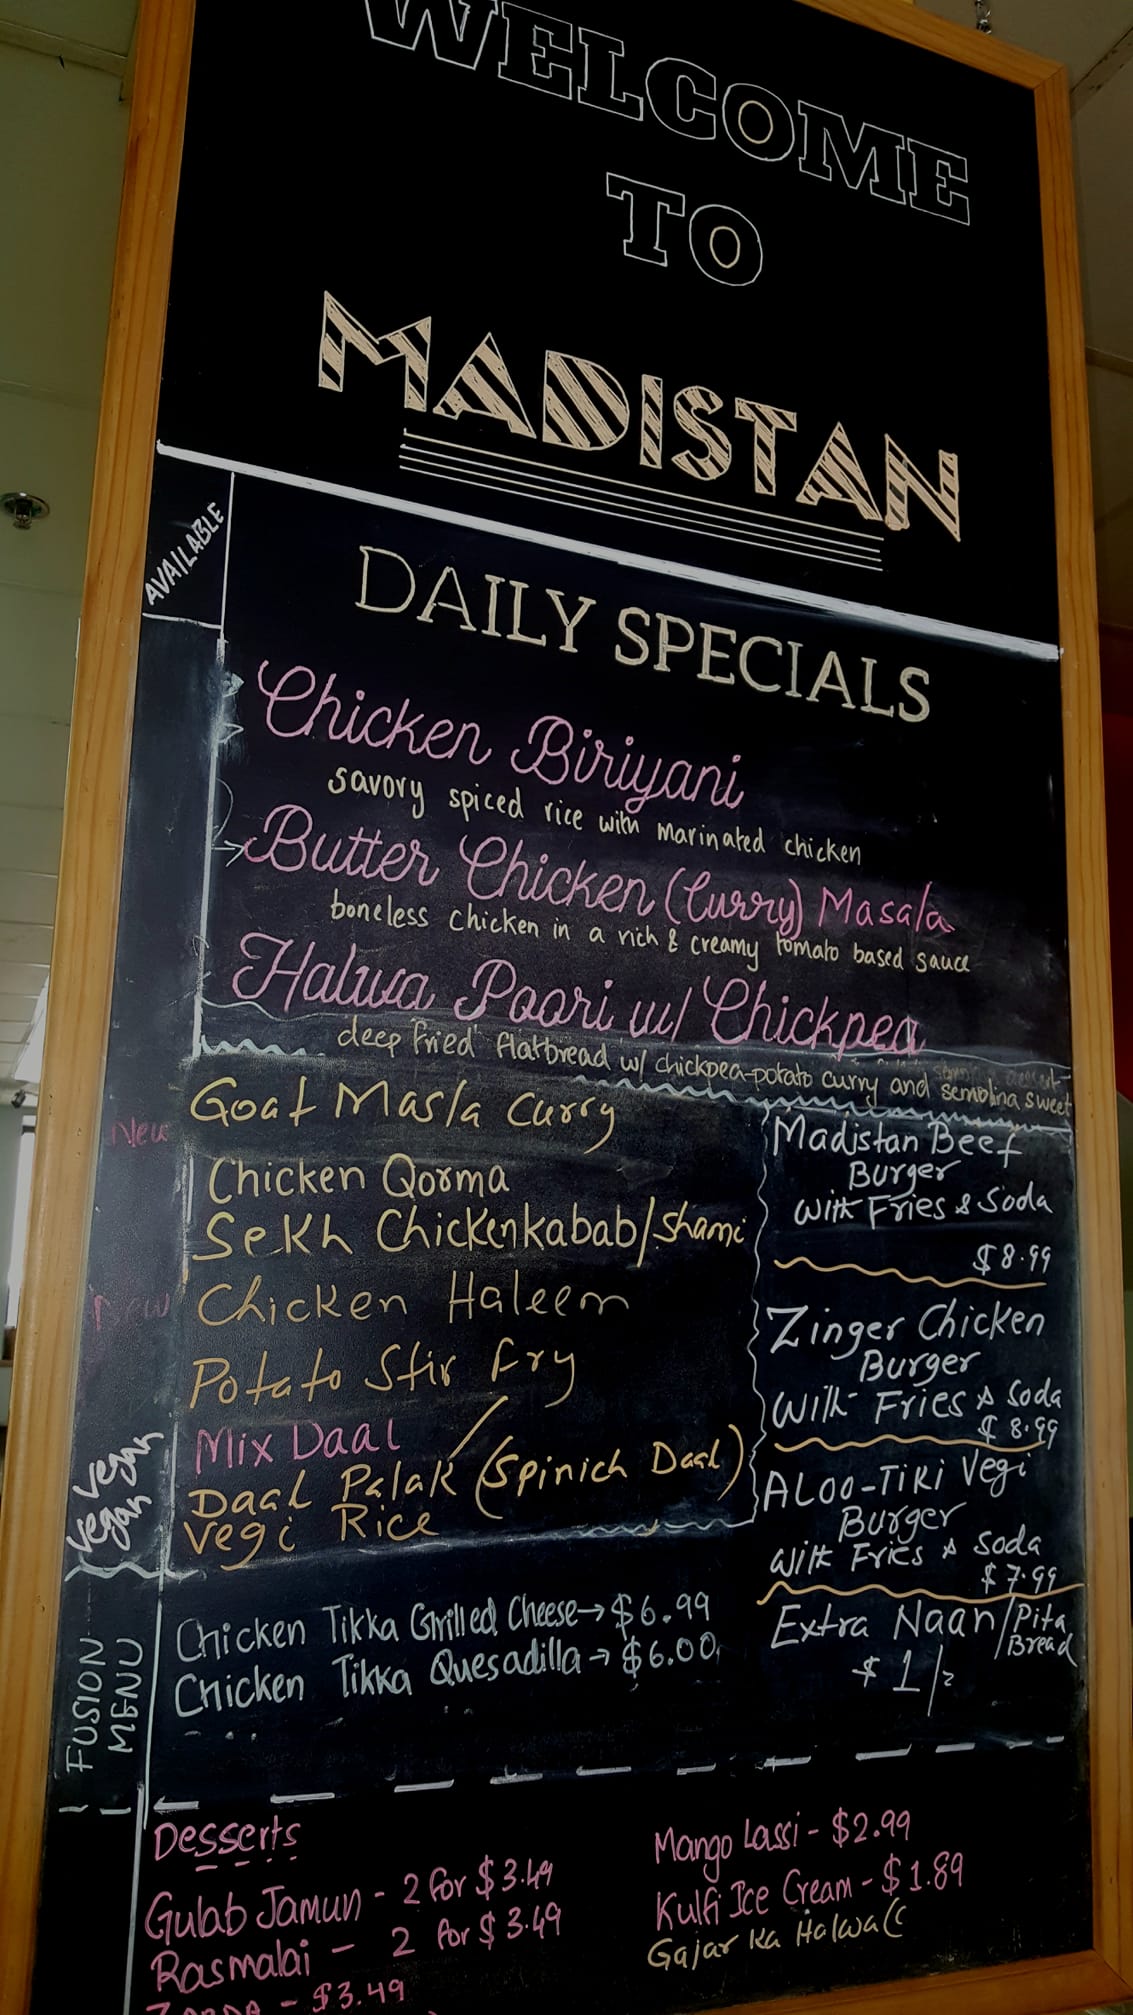 WELCOME
TO
MADISTAN
AVAILABLE
DAILY SPECIALS
Chicken Biriyani
savory spiced rice with marinated chicken
Butter Chicken (Curry) Masala
boneless chicken in a rich & creamy tomato based sauce
Halwa Poori w/ Chickpea
deep fried flatbread w/ chickpea-potato curry and semblina sweet
New
Goat Masla Curry
Chicken Qorma
Sekh Chickenkabab/Shami
New
Chicken Haleem
Potato Stir Fry
Mix Daal
Daal Palak (Spinich Daal)
Vegi Rice
Vegan
Vegan
Madistan Beef
Burger
with Fries & Soda
$8.99
Zinger Chicken
Burger
With Fries & Soda
$8.99
ALOO-TIKI Vegi
Burger
with Fries & Soda
$7.99
Extra Naan/Pita
Bread
$1/
FUSION
MENU
Chicken Tikka Grilled Cheese→$6.99
Chicken Tikka Quesadilla→$6.00
Desserts
Gulab Jamun - 2 for $3.49
Rasmalai - 2 for $3.49
ZARDA - $3.49
Mango Lassi - $2.99
Kulfi Ice Cream - $1.89
Gajar Ka Halwa